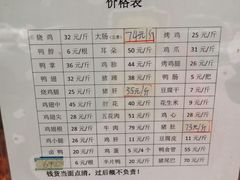 价格表
烧鸡 32元/斤 大肠(自制) 74元/斤 烤鸡 25元/斤
鸭脖 6元/根 耳朵 50元/斤 鸡爪 31元/斤
鸭掌 36元/斤 鸡胗 44元/斤 烤鸡翅 26元/斤
鸭翅 32元/斤 猪蹄 38元/斤 鸭肠 5元/把
烧鸡腿 32元/斤 猪肚 55元/斤 豆腐干 5元/斤
鸡翅中 45元/斤 肘花 40元/斤 花生米 9元/斤
鸡翅尖 32元/斤 五花肉 51元/斤 鸡心 28元/斤
鸡翅根 28元/斤 牛肉 79元/斤 猪肚 73元/斤
鸡小腿 32元/斤 猪肝 30元/斤 豆腐皮 11元/斤
卤鸭 20元/斤 鸡蛋 2元/个 鸭食管 55元/斤
6元 6元/根 辛片鸭 20元/斤 猪尾巴 70元/斤
钱货当面点清,过后概不负责!